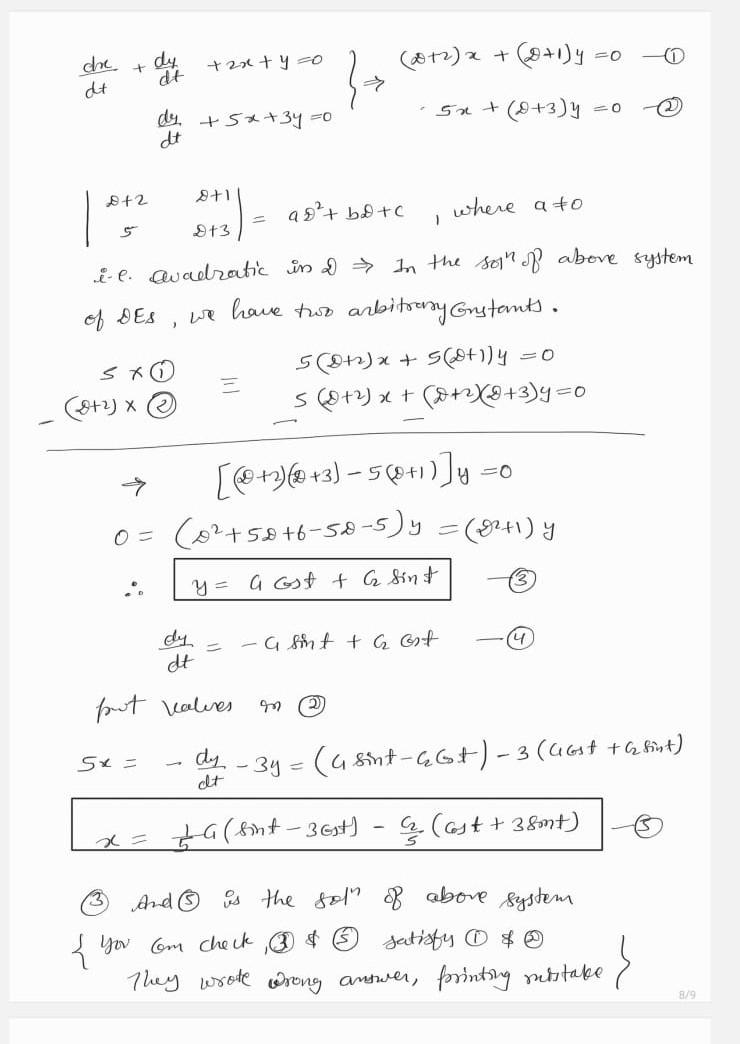 dx/dt + dy/dt + 2x + y = 0 } ⇒ (D+2)x + (D+1)y = 0 —①
dy/dt + 5x + 3y = 0 } 5x + (D+3)y = 0 —②
| D+2 D+1 |
| 5 D+3 | = aD² + bD + c , where a ≠ 0
i.e. Quadratic in D ⇒ In the solⁿ of above system
of DEs , we have two arbitrary Constants .
5 × ① ≡ 5(D+2)x + 5(D+1)y = 0
- (D+2) × ② 5(D+2)x + (D+2)(D+3)y = 0
- -
→ [(D+2)(D+3) - 5(D+1)]y = 0
0 = (D² + 5D + 6 - 5D - 5)y = (D²+1)y
∴ y = C₁ Cost + C₂ Sint —③
dy/dt = - C₁ sint + C₂ Cost —④
put values in ②
5x = - dy/dt - 3y = (C₁ sint - C₂ Cost) - 3(C₁ Cost + C₂ Sint)
x = 1/5 C₁ (Sint - 3Cost) - C₂/5 (Cost + 3Sint) —⑤
③ And ⑤ is the solⁿ of above system
{ You Can check , ③ & ⑤ satisfy ① & ②
They wrote wrong answer, printing mistake }
8/9